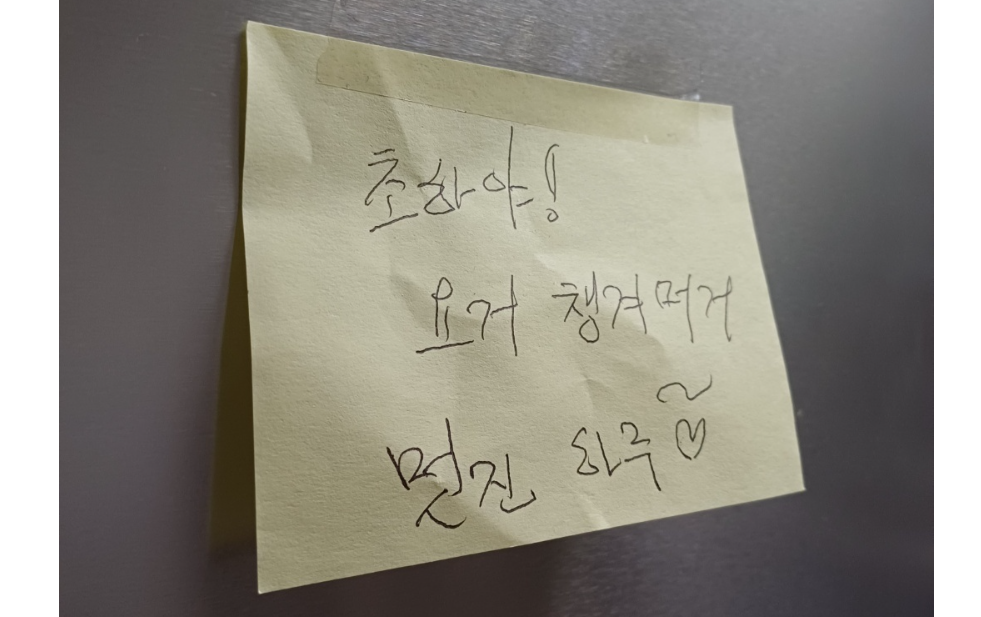 초하야!
요거 챙겨머거
멋진 하루~♡